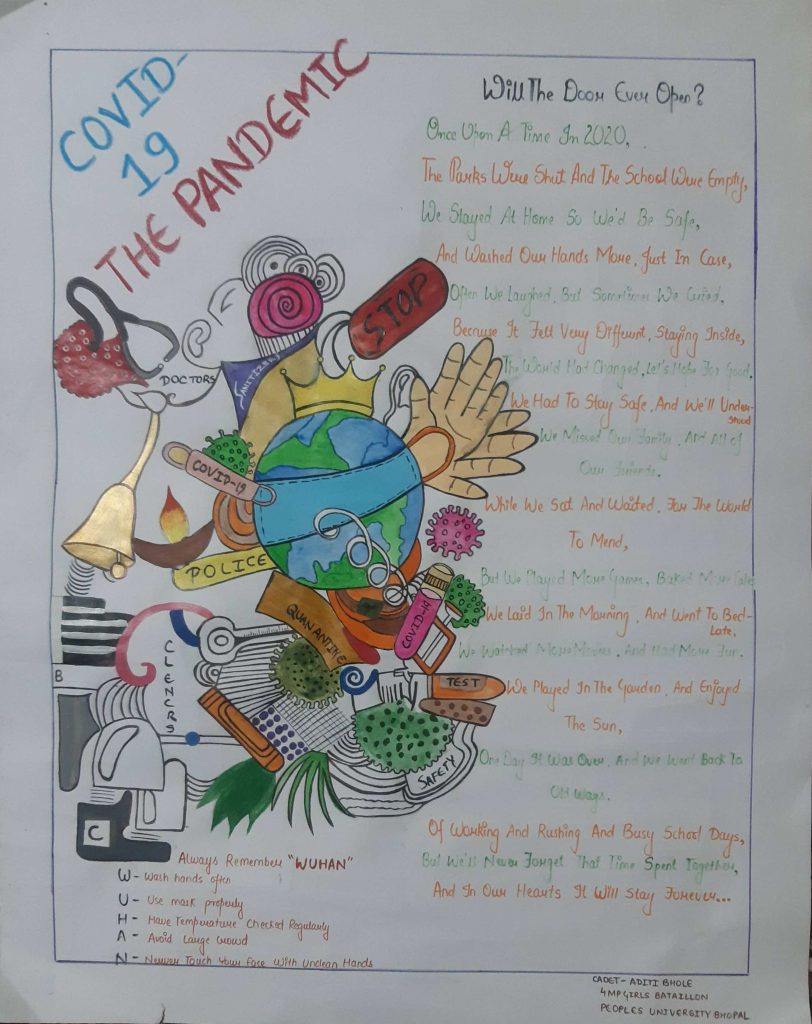 COVID-
19
THE PANDEMIC
Will The Door Ever Open?
Once Upon A Time In 2020,
The Parks Were Shut And The School Were Empty,
We Stayed At Home So We'd Be Safe,
And Washed Our Hands More, Just In Case,
Often We Laughed, But Sometimes We Cried,
Because It Felt Very Different, Staying Inside,
The World Had Changed, Let's Hope For Good,
We Had To Stay Safe, And We'll Under-
stood
We Missed Our Family, And All of
Our Friends.
While We Sat And Waited, For The World
To Mend,
But We Played More Games, Baked More Cake
We Laid In The Morning, And Went To Bed-
Late,
We Watched More Movies, And Had More Fun,
We Played In The Garden, And Enjoyed
The Sun,
One Day It Was Over, And We Went Back To
Old Ways,
Of Working And Rushing And Busy School Days,
But We'll Never Forget That Time Spent Together,
And In Our Hearts It Will Stay Forever...
STOP
DOCTORS
SANITIZER
COVID-19
POLICE
QUANANTIKE
COVID-19
CLENCRS
TEST
B
SAFETY
C
Always Remember "WUHAN"
W- Wash hands often
U- Use mask properly
H- Have Temperature Checked Regularly
A- Avoid Large Crowd
N- Never Touch Your Face With Unclean Hands
CADET- ADITI BHOLE
4 MP GIRLS BATAILLON
PEOPLES UNIVERSITY BHOPAL